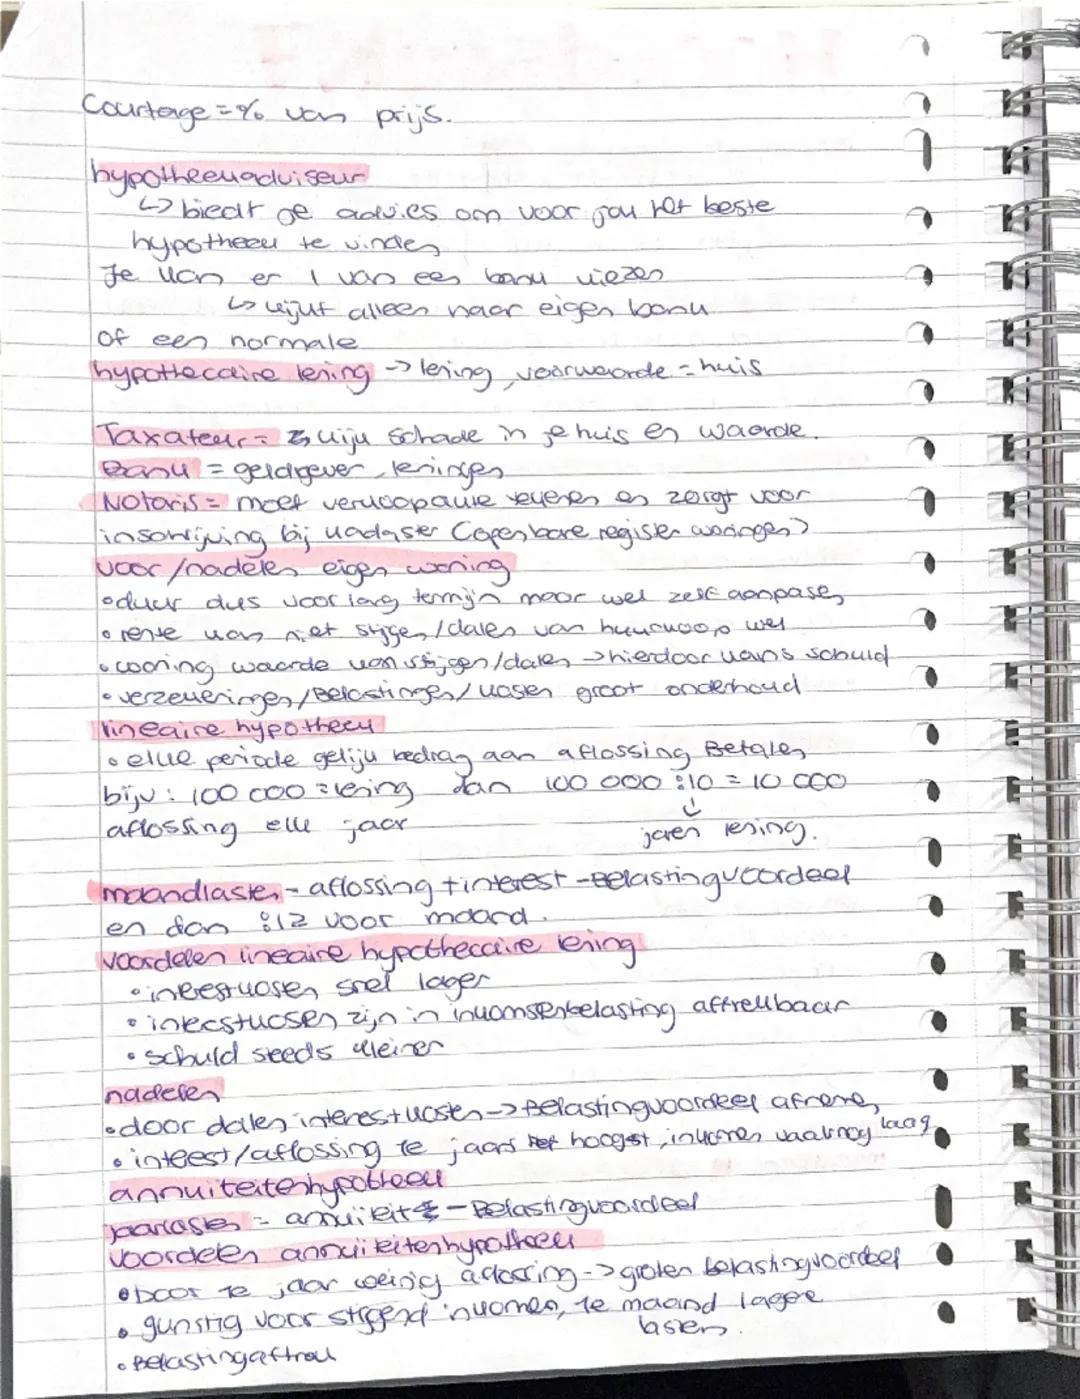 Courtage = % van prijs.
hypotheekadviseur
↳ biedt je advies om voor jou het beste
hypotheek te vinden
Je kan er 1 van een bank kiezen
↳ kijkt alleen naar eigen bank
of een normale
hypothecaire lening -> lening, voorwaarde = huis
Taxateur = kijk schade in je huis en waarde.
Bank = geldgever leningen
Notaris = moet verkoopakte tekenen en zorgt voor
inschrijving bij kadaster (openbare register woningen)
voor/nadelen eigen woning
• duur dus voor lang termijn maar wel zelf aanpassen
• rente kan niet stijgen/dalen van huurkoop wel
• woning waarde kan stijgen/dalen -> hierdoor kans schuld
• verzekeringen/Belastingen/kosten groot onderhoud
lineaire hypotheek
• elke periode gelijk bedrag aan aflossing Betalen
bijv: 100 000 = lening dan 100 000 : 10 = 10 000
aflossing elk jaar
↓
jaren lening.
maandlasten = aflossing + interest - Belastingvoordeel
en dan :12 voor maand.
voordelen lineaire hypothecaire lening
• interestkosten snel lager
• interestkosten zijn in inkomstenbelasting aftrekbaar
• schuld steeds kleiner
nadelen
• door dalen interestkosten -> Belastingvoordeel afneme
• interest/aflossing 1e jaars het hoogst, inkomen vaak nog laag
annuiteitenhypotheek
jaarlasten = annuiteit - Belastingvoordeel
voordelen annuiteitenhypotheek
• Door 1e jaar weinig aflossing -> groten belastingvoordeel
• gunstig voor stijgend inkomen, 1e maand lagere
lasten.
• Belastingaftrek